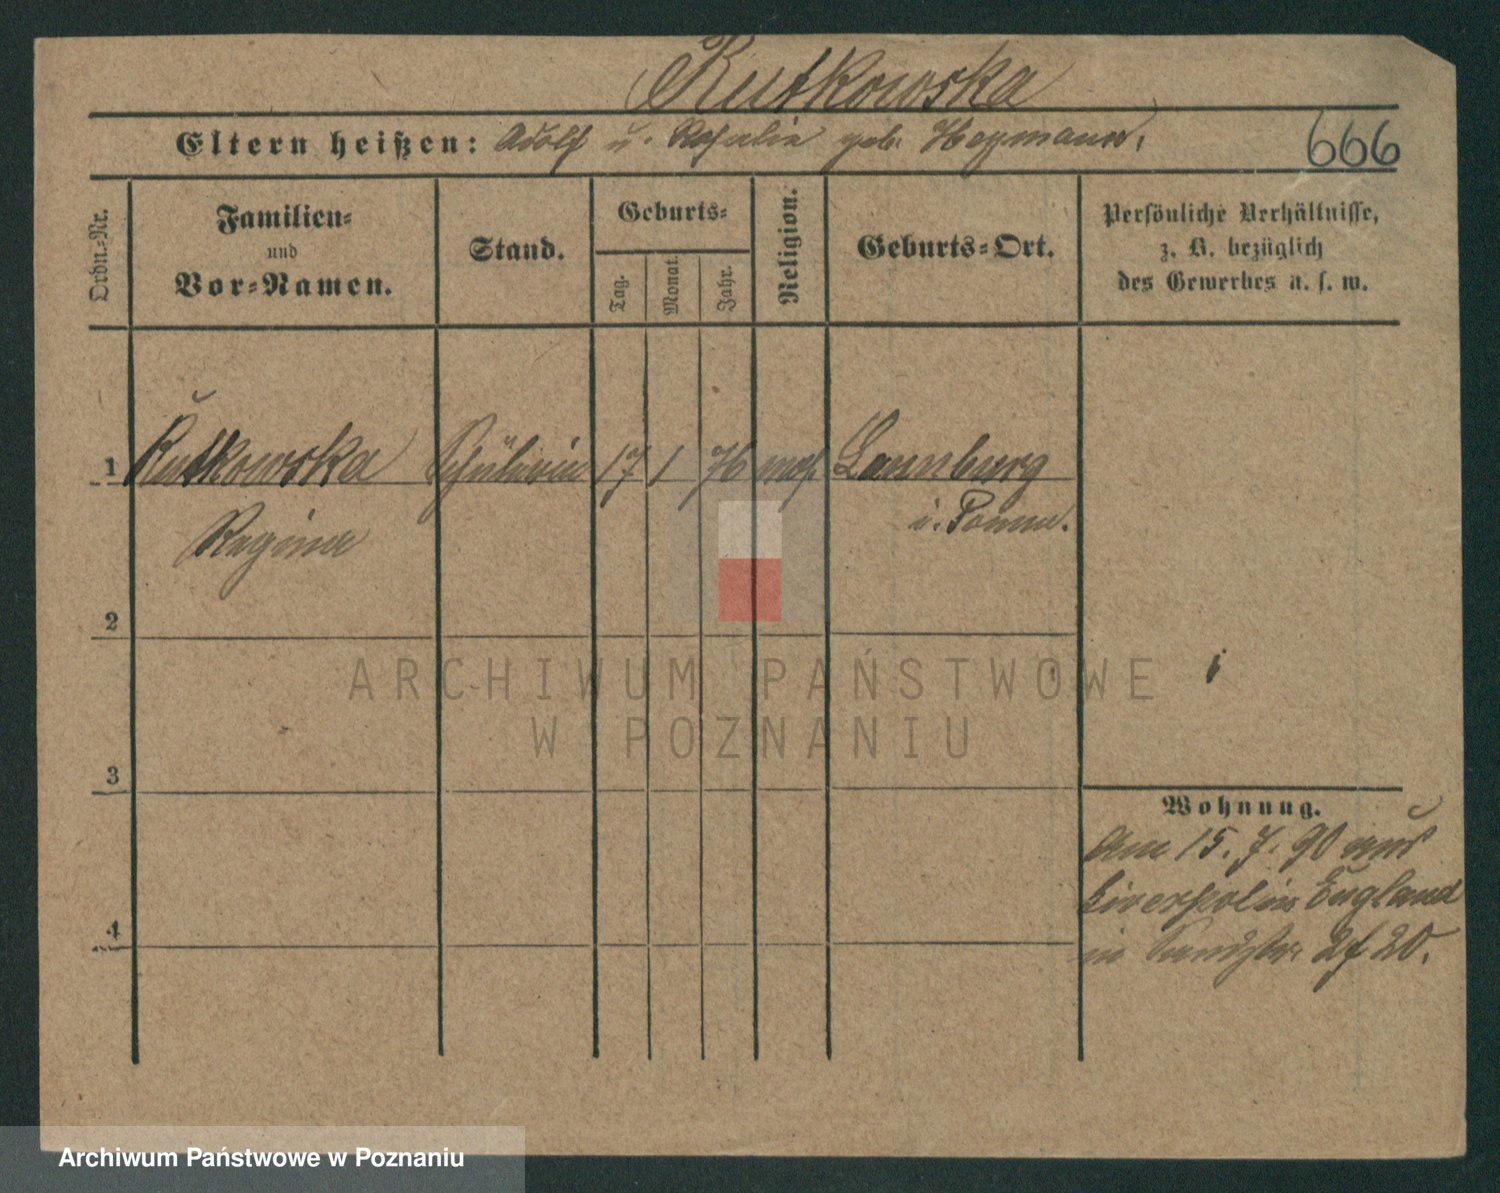 Rutkowska
Eltern heißen: Adolf u. Rosalie geb. Heymann.
666
Ordn.-Nr.
Familien-
und
Vor-Namen.
Stand.
Geburts-
Tag.
Monat.
Jahr.
Religion.
Geburts-Ort.
Persönliche Verhältnisse,
z. B. bezüglich
des Gewerbes u. s. w.
1 Rutkowska Schülerin 17 1 76 mos. Lauenburg
Regina i. Pomm.
2
3
4
Wohnung.
Am 15. 7. 90 aus
Liverpol in England
in 20.
ARCHIWUM PAŃSTWOWE
W POZNANIU
Archiwum Państwowe w Poznaniu